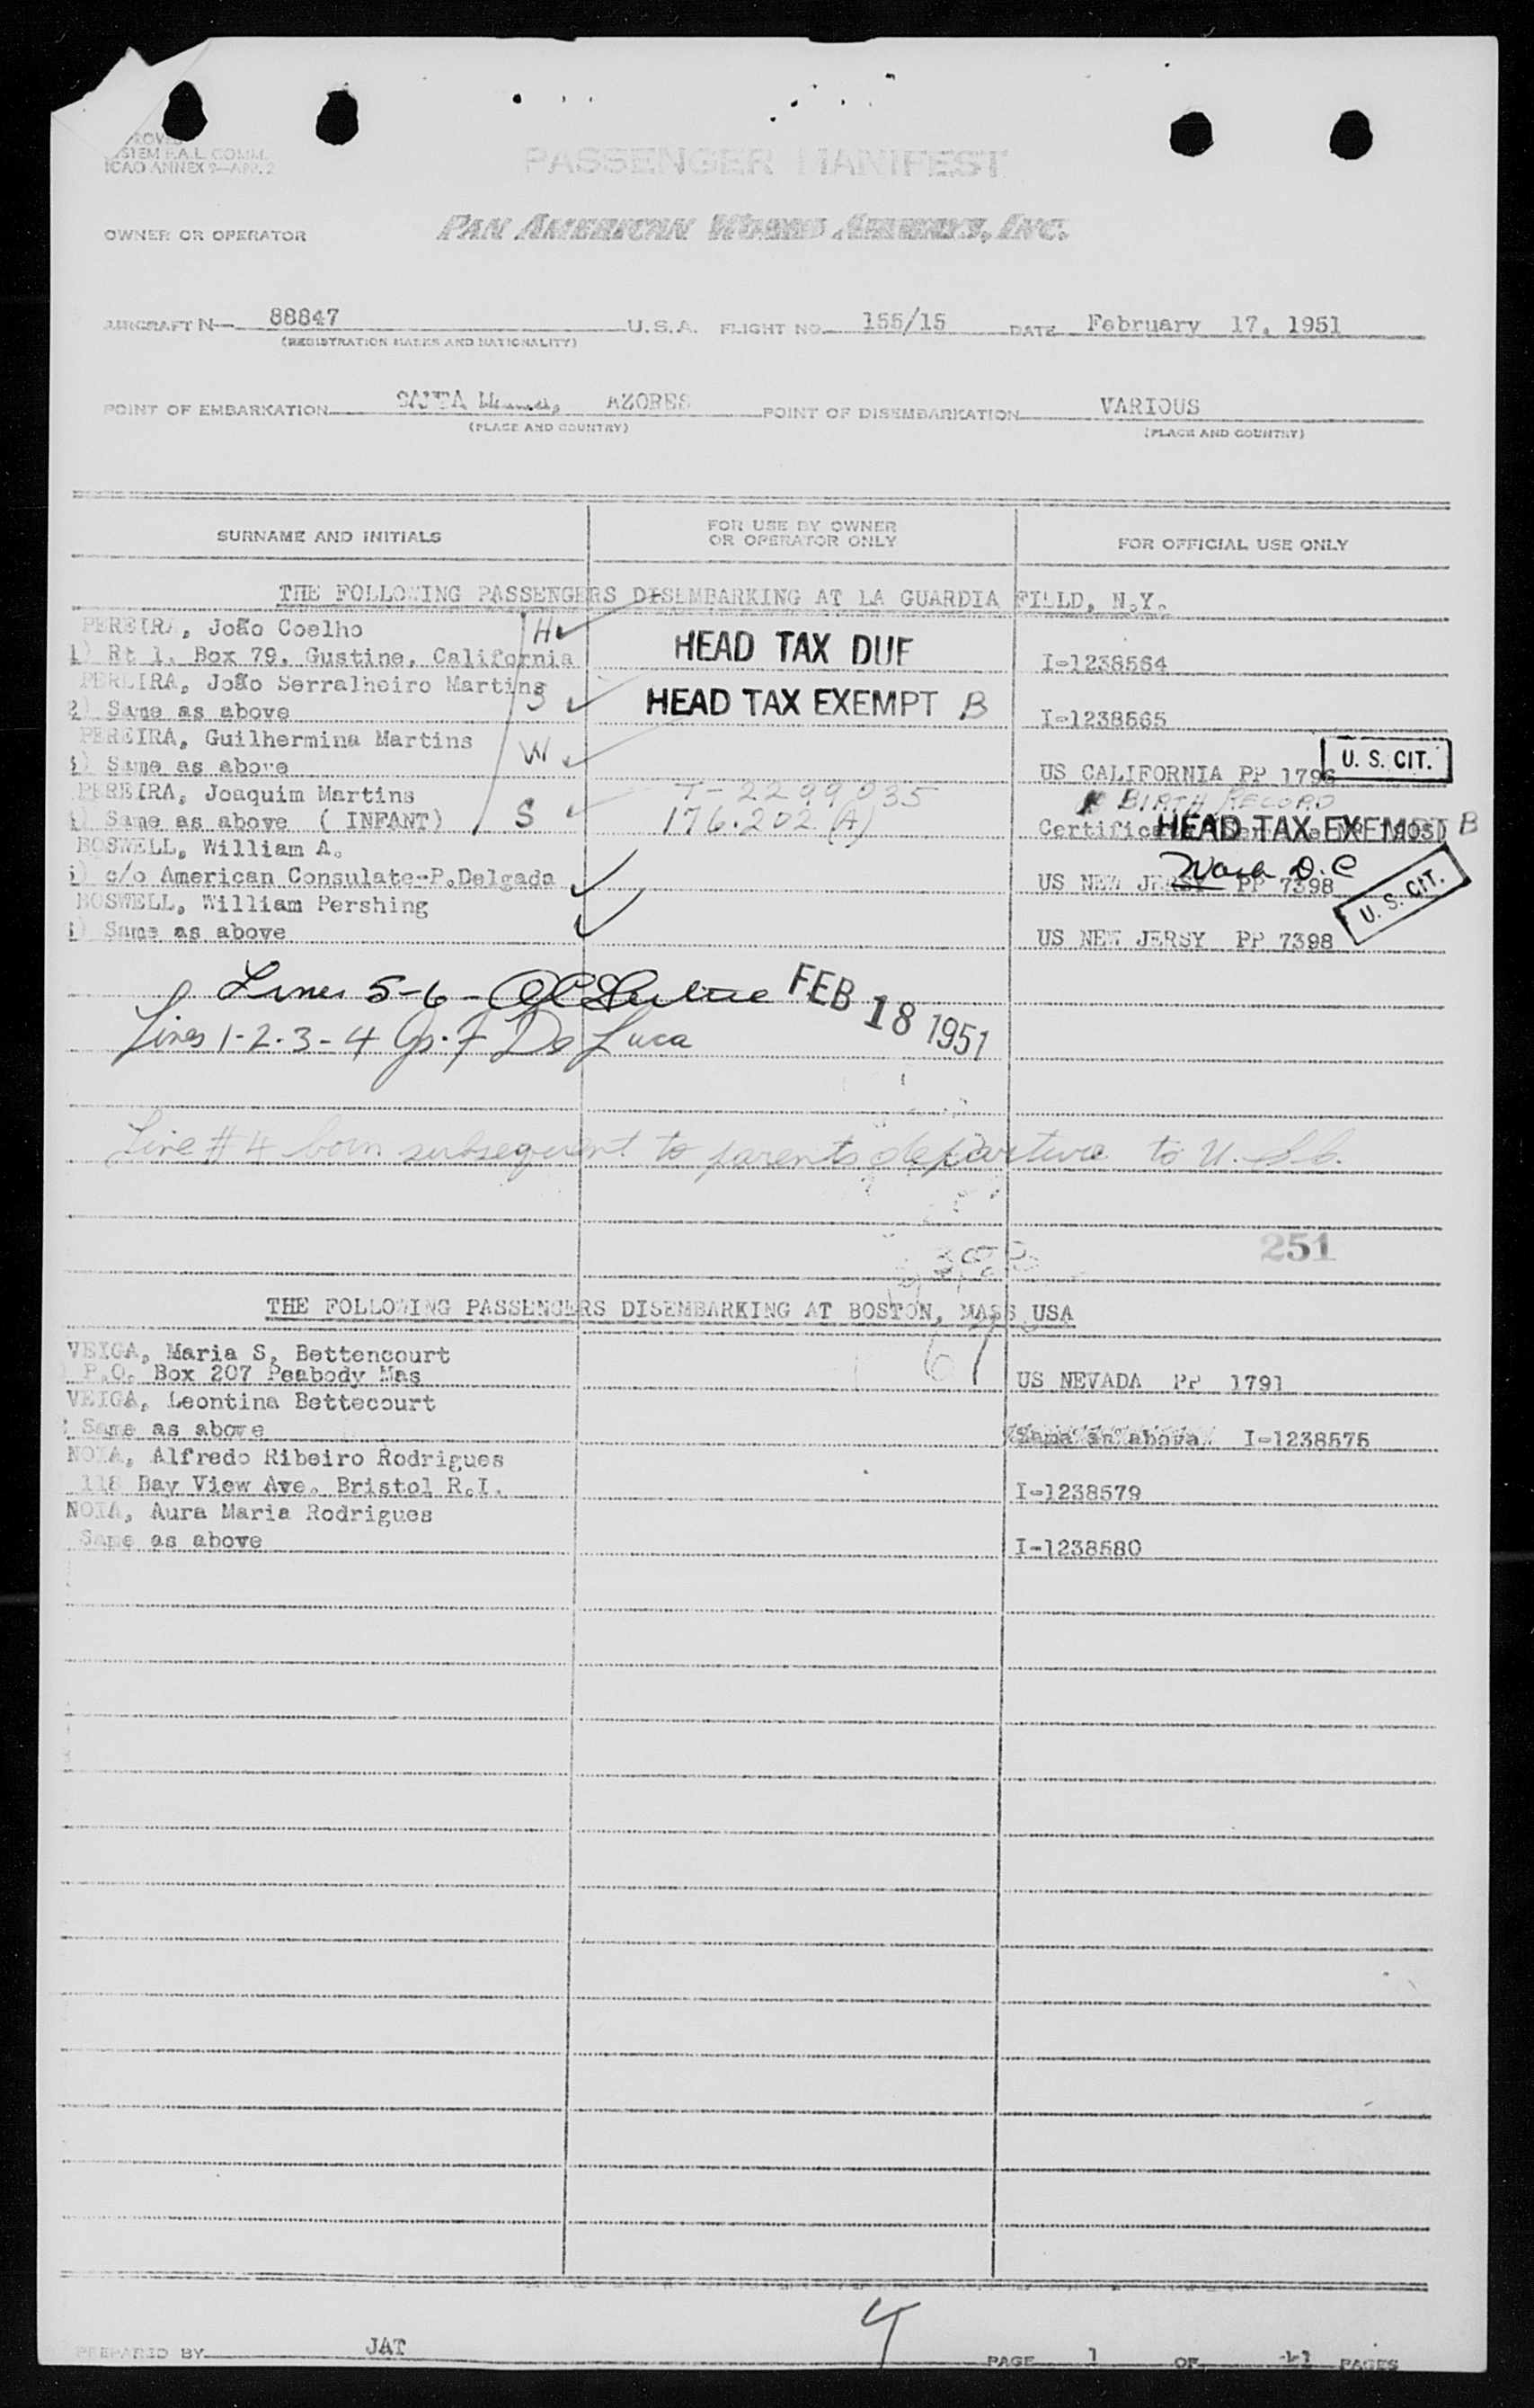 ICAO ANNEX 9—APP. 2
PASSENGER MANIFEST
OWNER OR OPERATOR PAN AMERICAN WORLD AIRWAYS, INC.
AIRCRAFT N— 88847 U.S.A. FLIGHT NO. 155/15 DATE February 17, 1951
(REGISTRATION MARKS AND NATIONALITY)
POINT OF EMBARKATION SANTA Maria, AZORES POINT OF DISEMBARKATION VARIOUS
(PLACE AND COUNTRY) (PLACE AND COUNTRY)
SURNAME AND INITIALS FOR USE BY OWNER OR OPERATOR ONLY FOR OFFICIAL USE ONLY
THE FOLLOWING PASSENGERS DISEMBARKING AT LA GUARDIA FIELD, N.Y.
PEREIRA, João Coelho H
1) Rt 1. Box 79. Gustine, California HEAD TAX DUE I-1238564
PEREIRA, João Serralheiro Martins
2) Same as above S HEAD TAX EXEMPT B I-1238565
PEREIRA, Guilhermina Martins W
3) Same as above US CALIFORNIA PP 1796 U. S. CIT.
PEREIRA, Joaquim Martins T-2299035 BIRTH RECORD
4) Same as above ( INFANT) S 176.202 (A) HEAD TAX EXEMPT B
BOSWELL, William A. Wash D.C
5) c/o American Consulate-P.Delgada US NEW JERSY PP 7398 U. S. CIT.
BOSWELL, William Pershing
6) Same as above US NEW JERSY PP 7398
Lines 5-6- FEB 18 1951
Lines 1-2-3-4 De Luca
Line #4 born subsequent to parents departure to U.S.
251
THE FOLLOWING PASSENGERS DISEMBARKING AT BOSTON, MASS USA
VEIGA, Maria S. Bettencourt
P.O. Box 207 Peabody Mas US NEVADA PP 1791
VEIGA, Leontina Bettecourt
Same as above Same as above I-1238575
NOIA, Alfredo Ribeiro Rodrigues
118 Bay View Ave. Bristol R.I. I-1238579
NOIA, Aura Maria Rodrigues
Same as above I-1238580
4
PREPARED BY JAT PAGE 1 OF PAGES